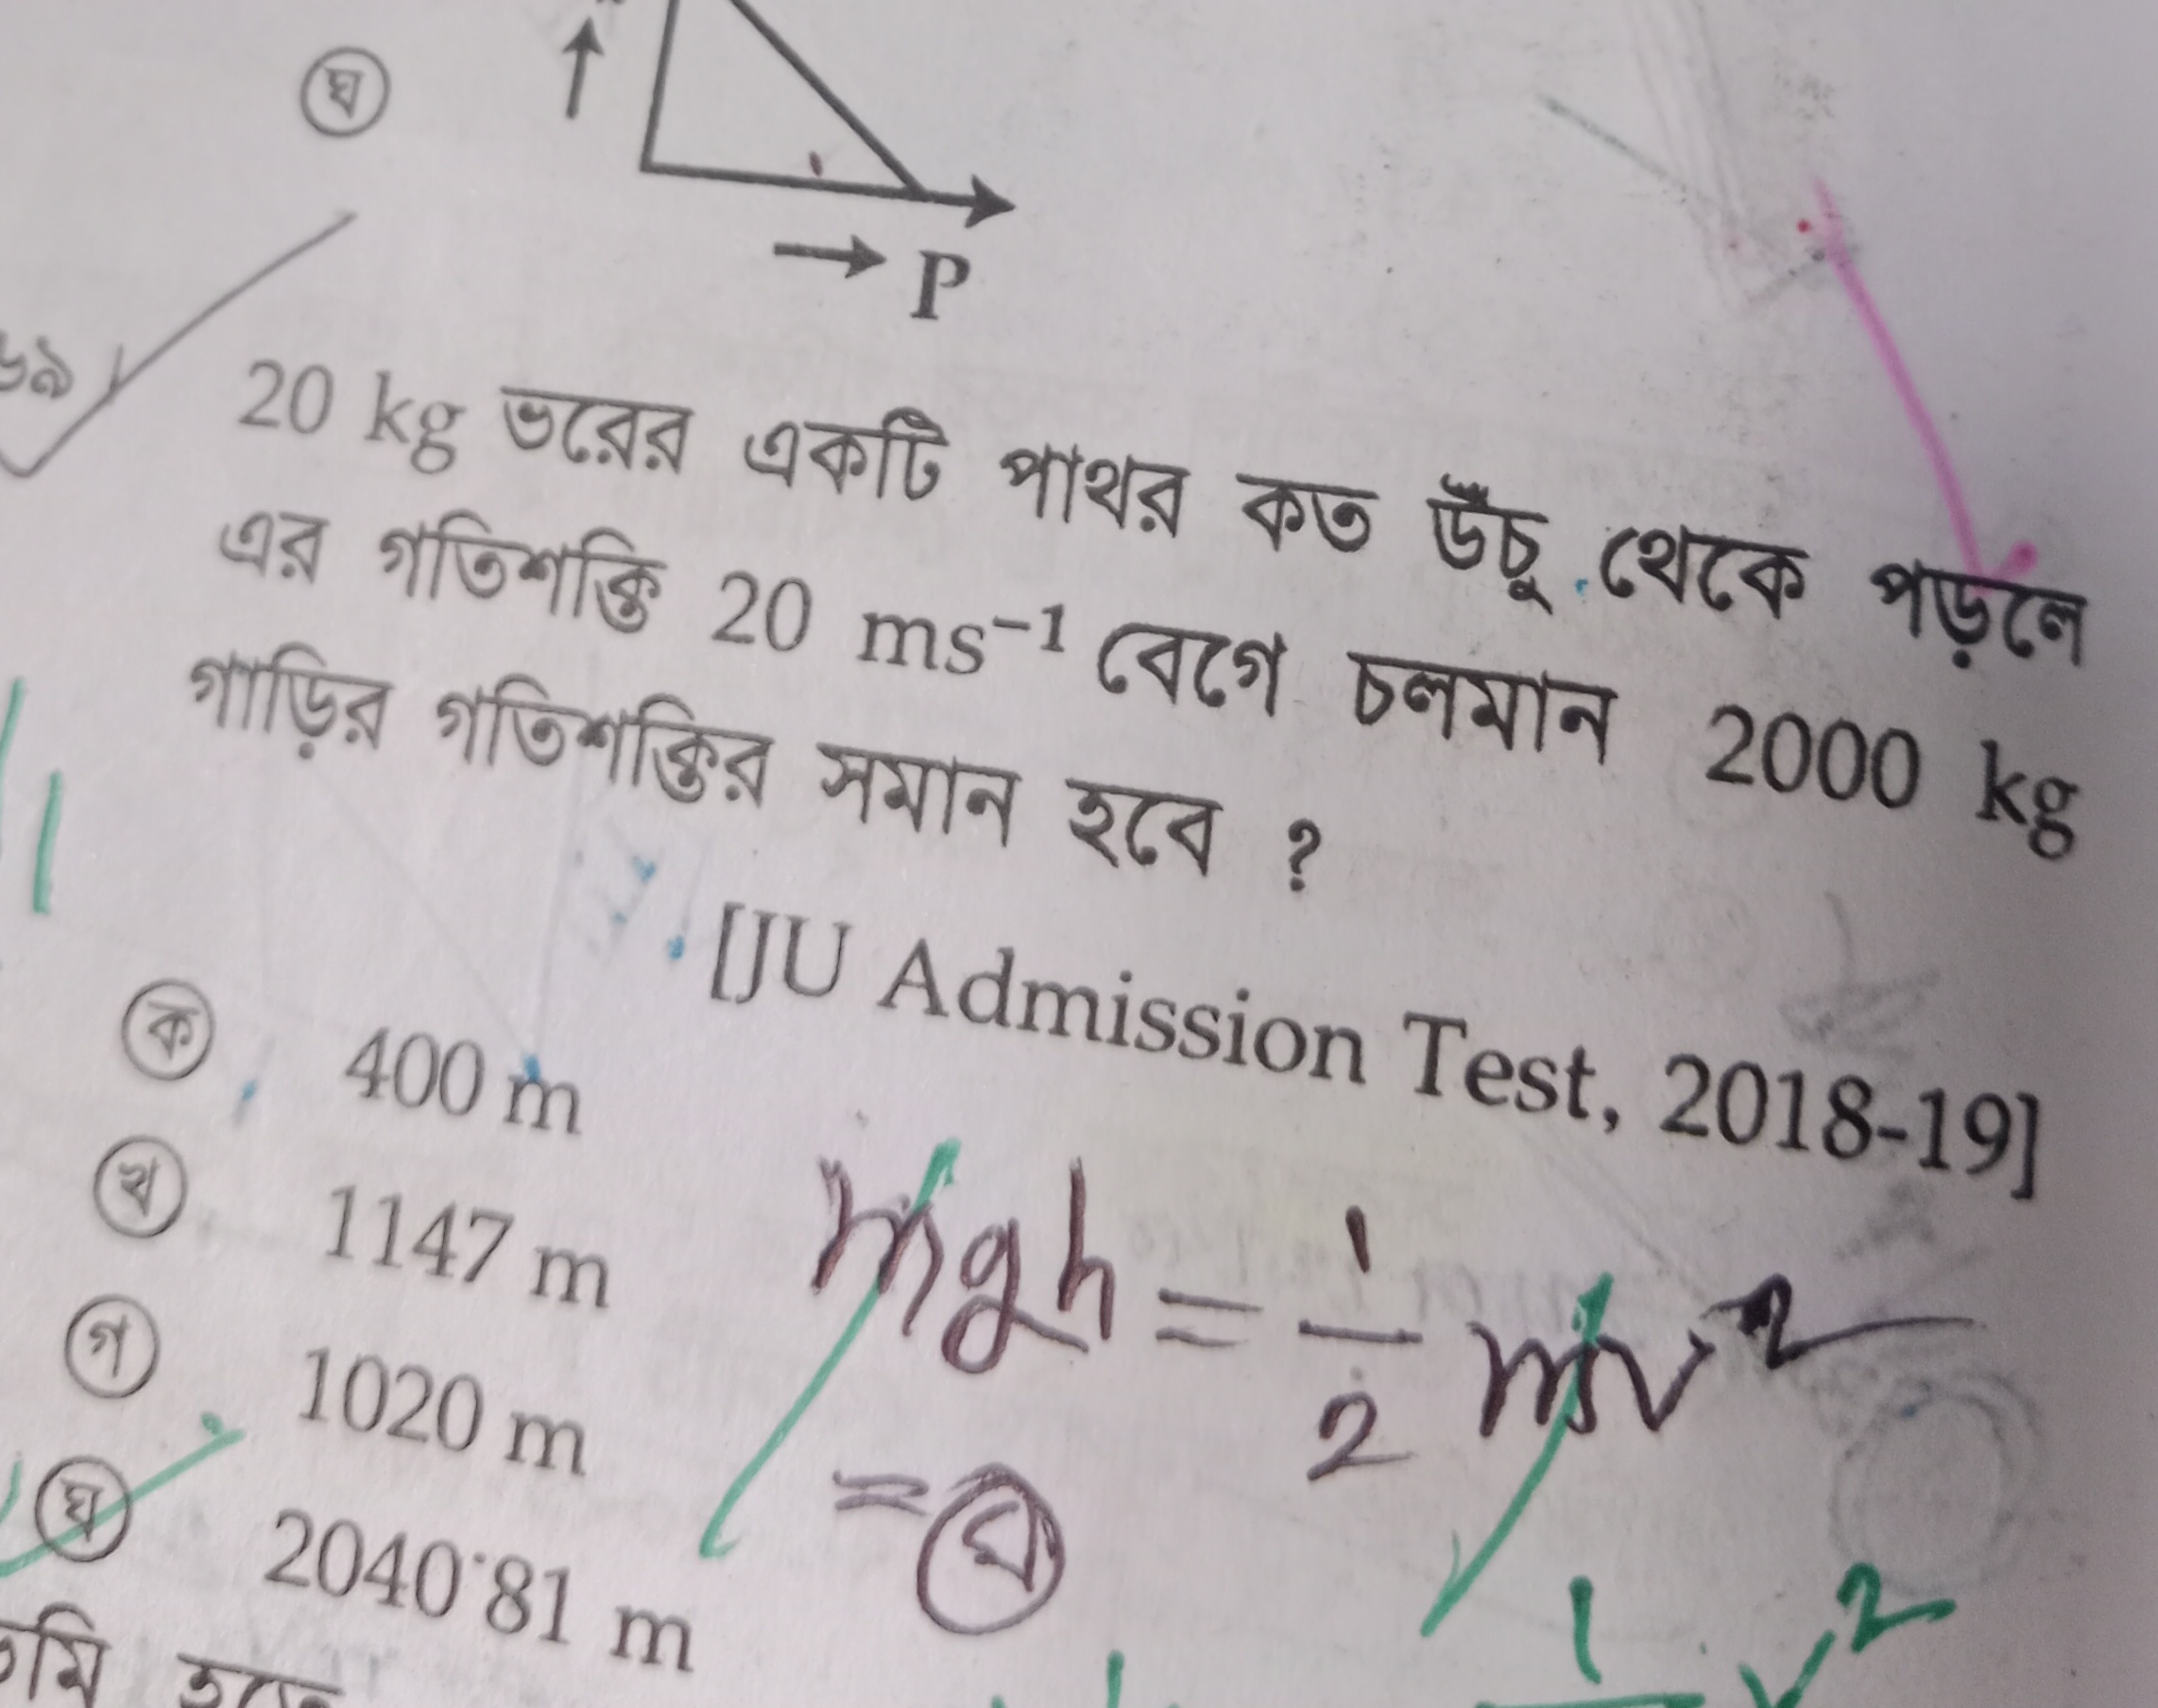 ঘ
→ P
৬৯
20 kg ভরের একটি পাথর কত উঁচু থেকে পড়লে
এর গতিশক্তি 20 ms⁻¹ বেগে চলমান 2000 kg
গাড়ির গতিশক্তির সমান হবে ?
[JU Admission Test, 2018-19]
ক 400 m
খ 1147 m
গ 1020 m
ঘ 2040·81 m
mgh = 1/2 mv²
= ঘ